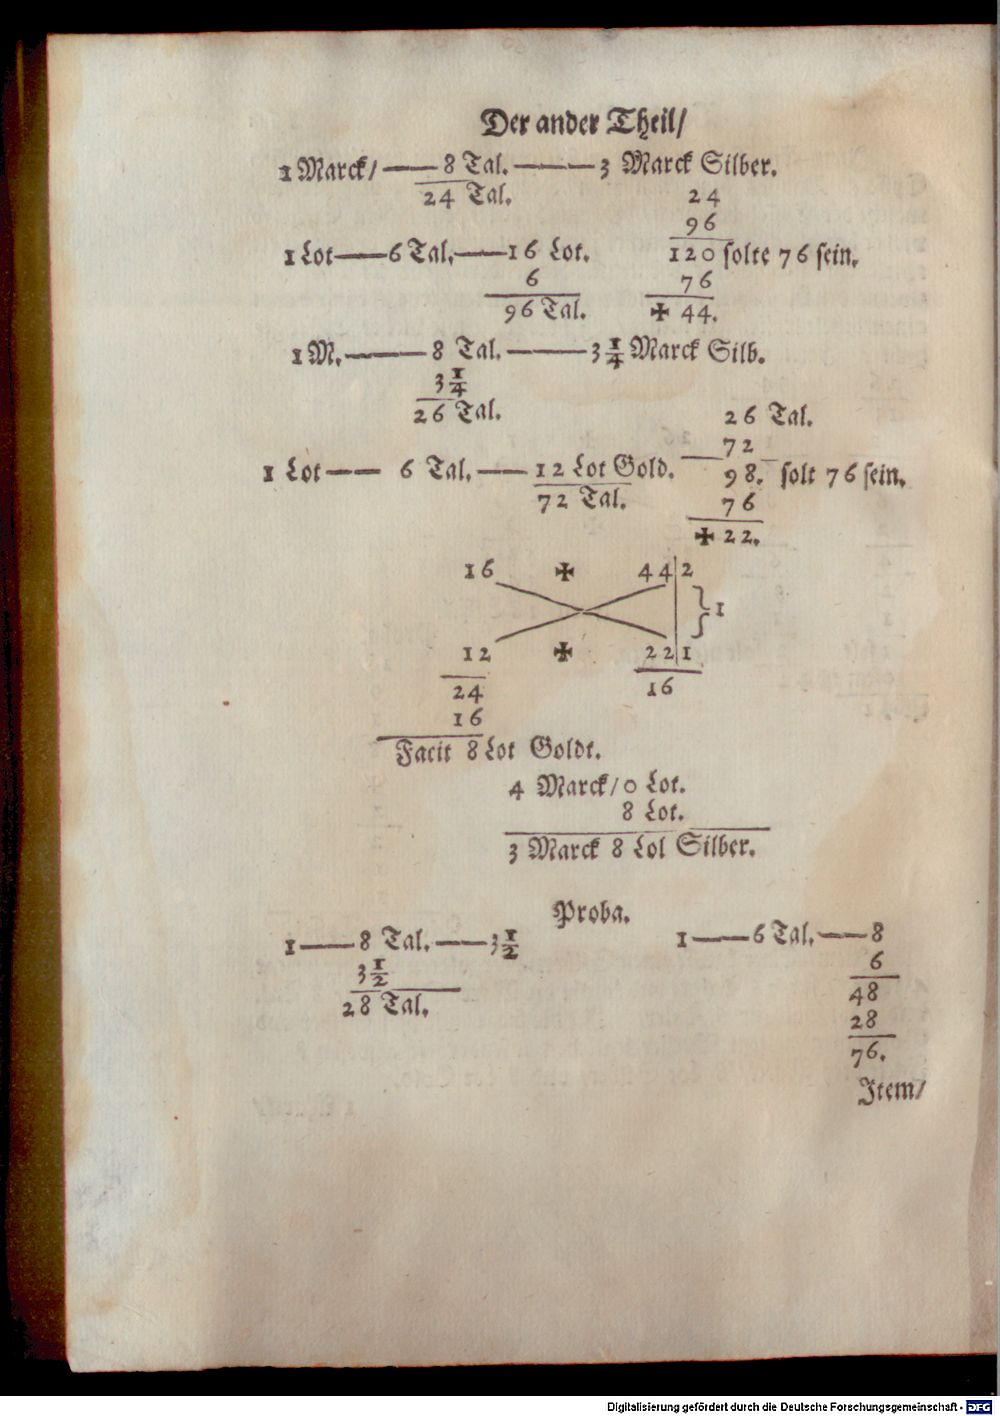 Der ander Theil/
1 Marck/ —— 8 Tal. —— 3 Marck Silber.
24 Tal. 24
96
1 Lot —— 6 Tal. —— 16 Lot. 120 solte 76 sein.
6 76
96 Tal. ✠ 44.
1 M. —— 8 Tal. —— 3 1/4 Marck Silb.
3 1/4
26 Tal. 26 Tal.
72
1 Lot —— 6 Tal. —— 12 Lot Gold. 98. solt 76 sein.
72 Tal. 76
✠ 22.
16 ✠ 44 | 2
} 1
12 ✠ 22 | 1
24 16
16
Facit 8 Lot Goldt.
4 Marck/ 0 Lot.
8 Lot.
3 Marck 8 Lol Silber.
Proba.
1 —— 8 Tal. —— 3 1/2 1 —— 6 Tal. —— 8
3 1/2 6
28 Tal. 48
28
76.
Item/
Digitalisierung gefördert durch die Deutsche Forschungsgemeinschaft - DFG